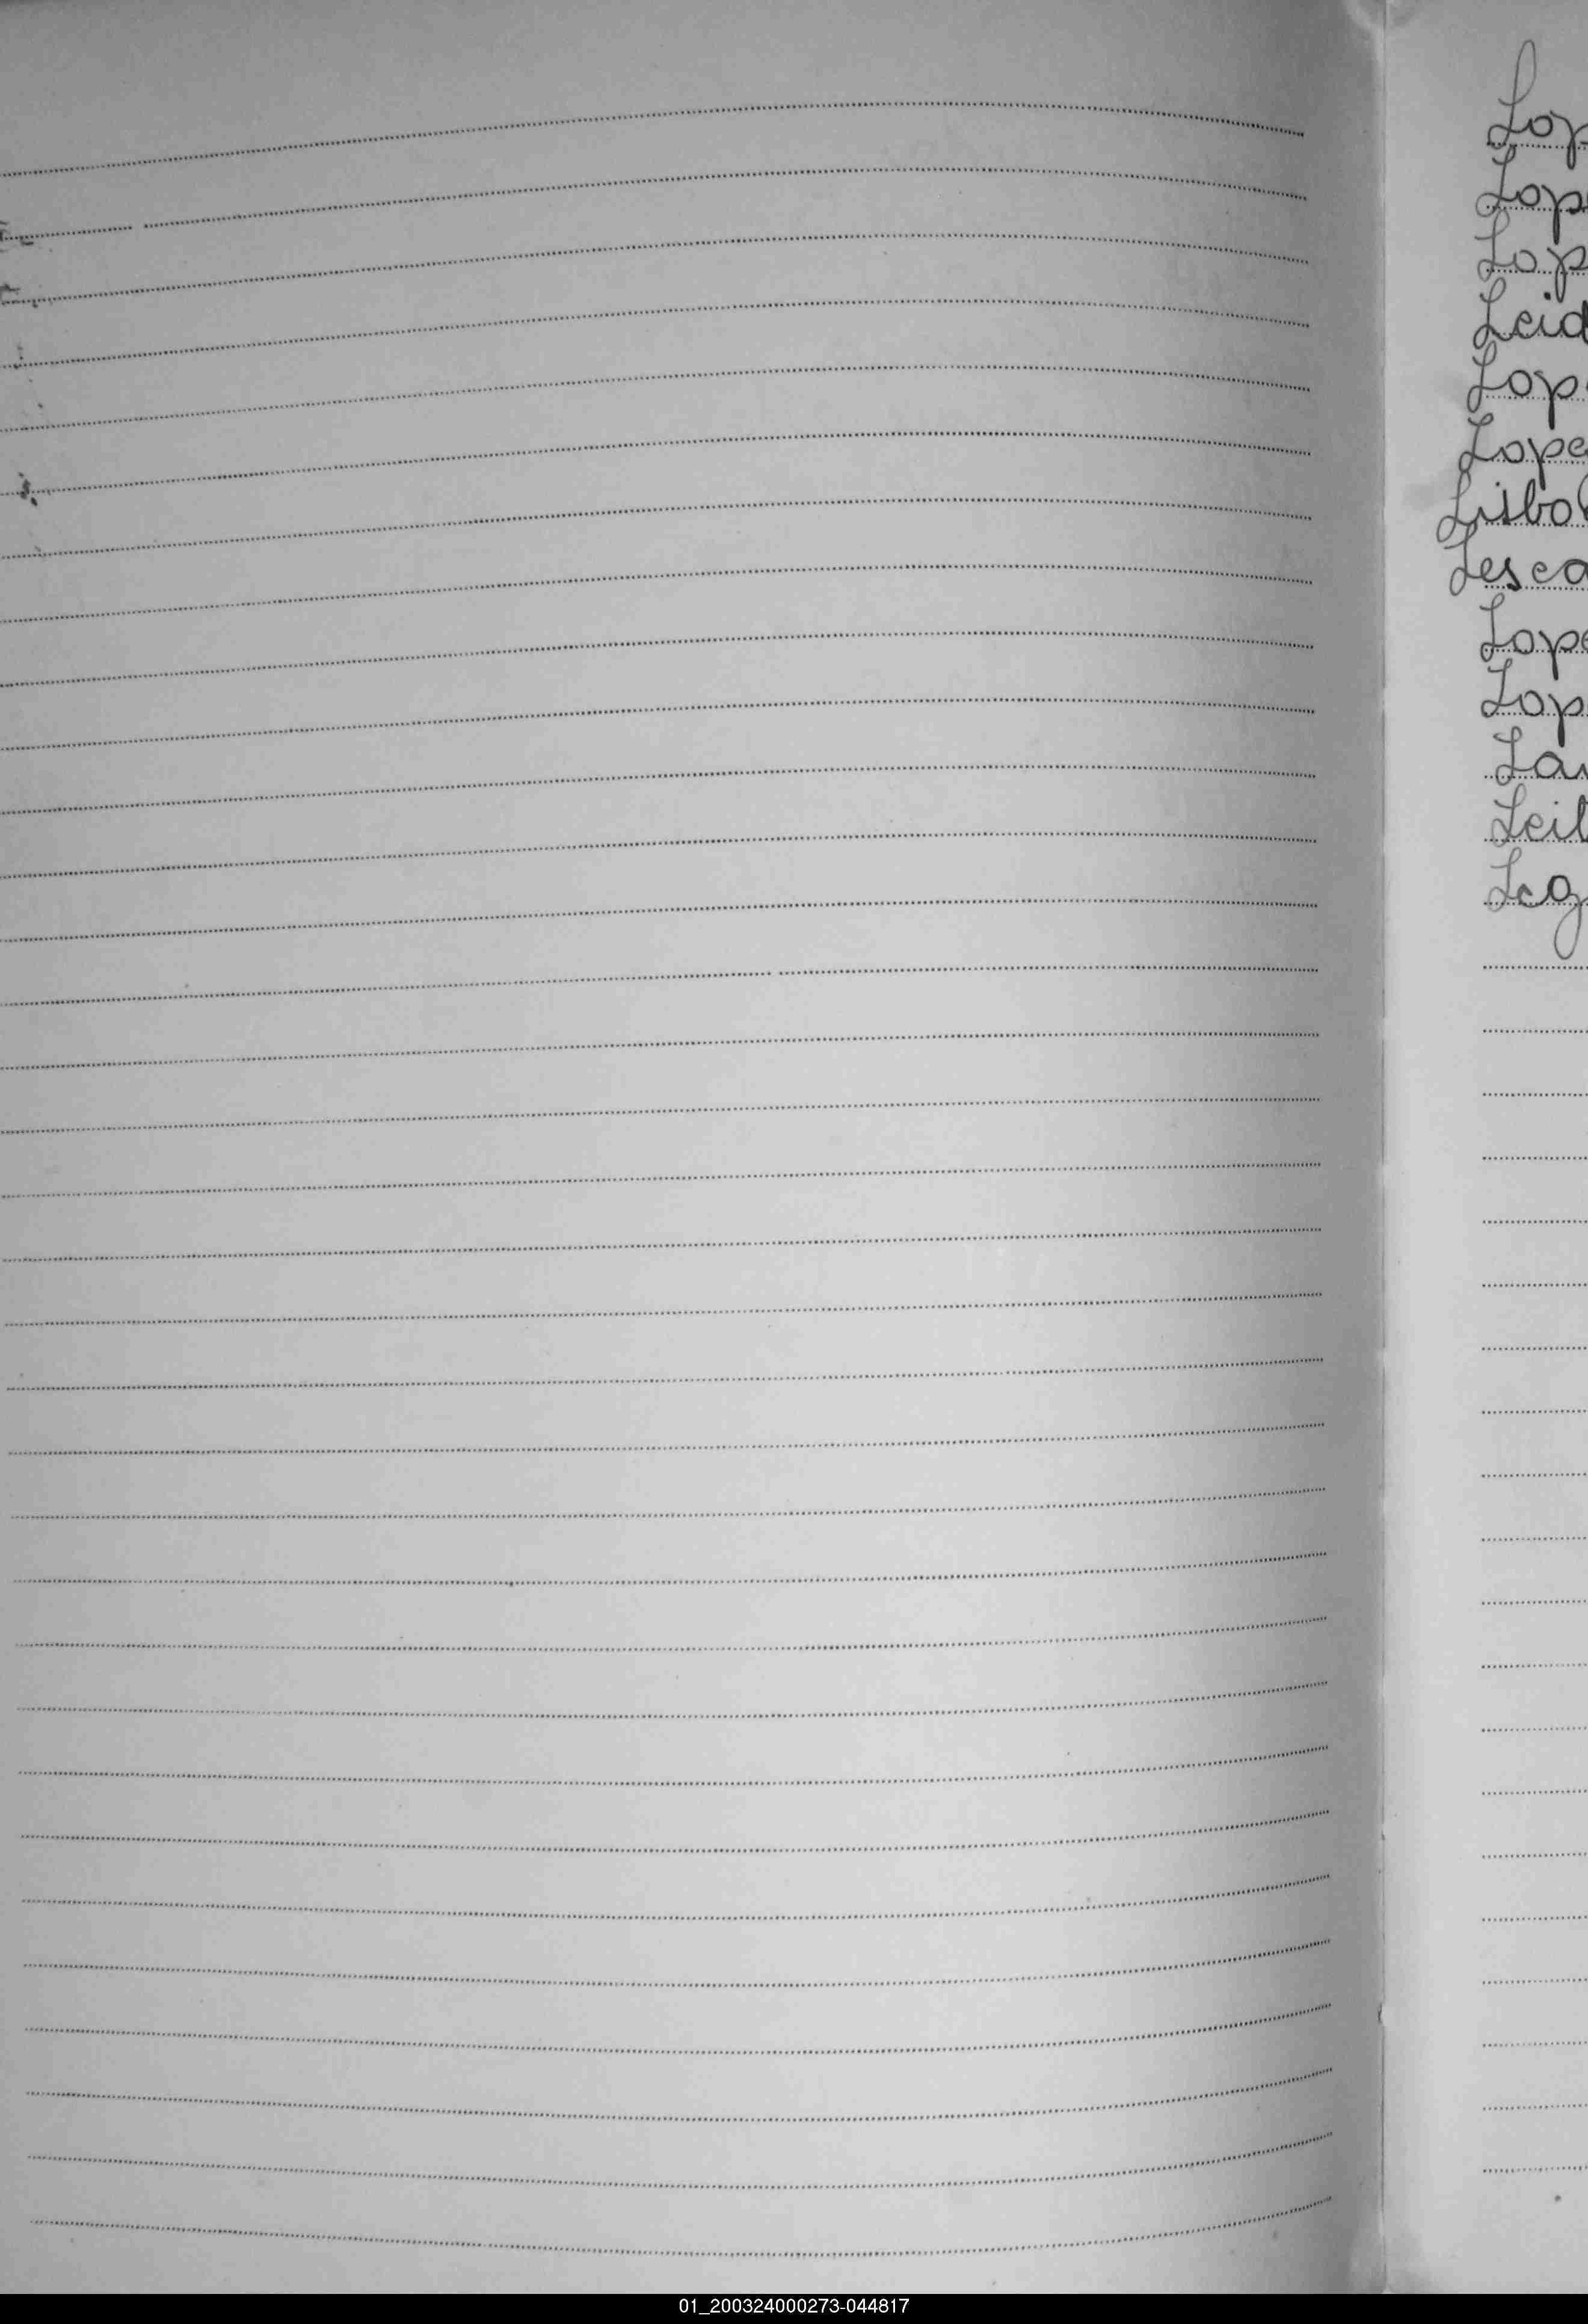 Lop
Lope
Lop
Leid
Lop
Lope
Lisbo
Lesca
Lope
Lop
Lau
Leil
01_200324000273-044817